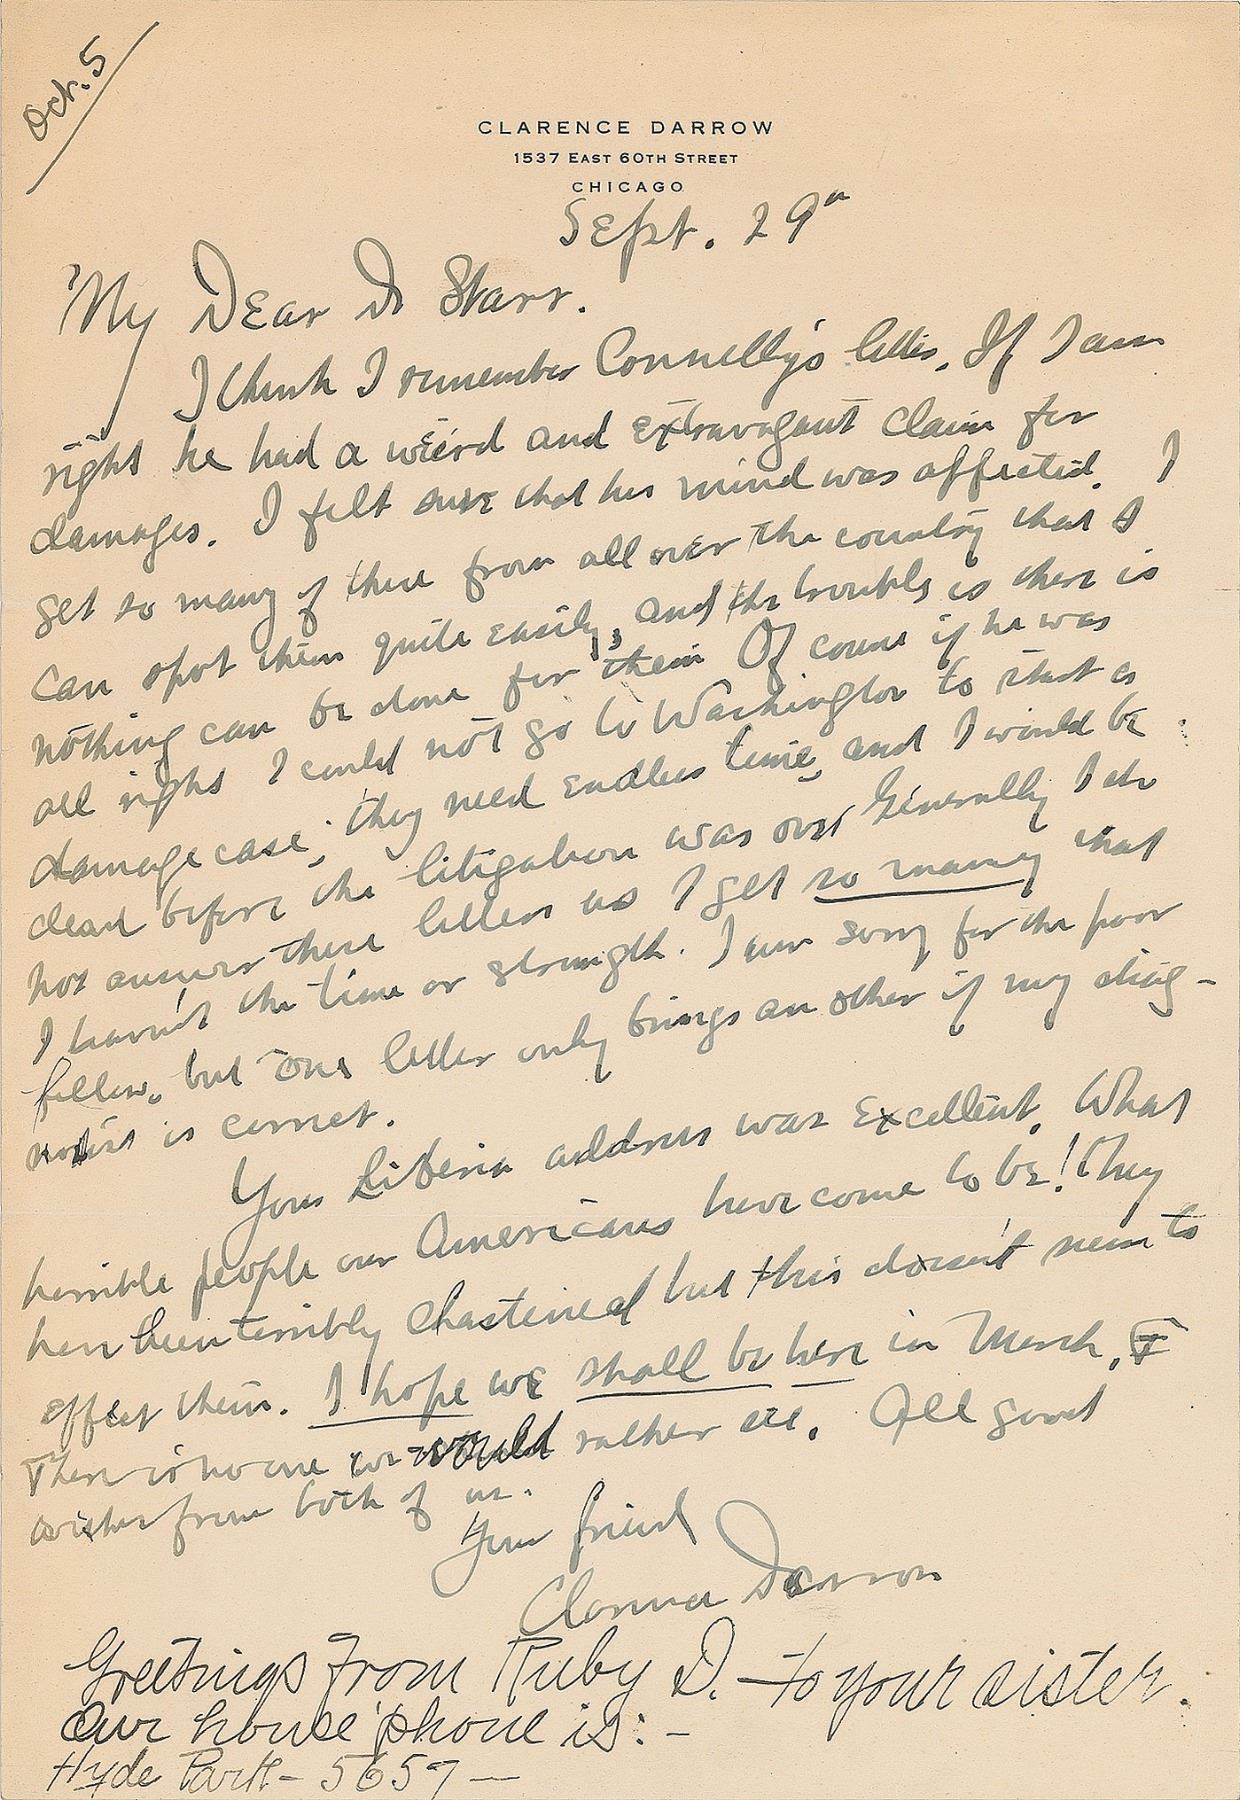 Oct. 5
CLARENCE DARROW
1537 EAST 60TH STREET
CHICAGO
Sept. 29"
My Dear Dr Starr.
I think I remember Connelly's letter. If I am
right he had a weird and extravagant claim for
damages. I felt sure that his mind was affected. I
get so many of these from all over the country that I
can spot them quite easily, and the trouble is there is
nothing can be done for them Of course if he was
all right I could not go to Washington to start a
damage case; they need endless time, and I would be
dead before the litigation was over Generally I do
not answer these letters as I get so many that
I haven't the time or strength. I am sorry for the poor
fellow, but one letter only brings an other if my diag-
nosis is correct.
Your Liberia address was excellent. What
horrible people our Americans have come to be! They
have been terribly chastened but this doesn't seem to
effect them. I hope we shall be here in March.
There is no one we would rather see. All good
wishes from both of us.
Your friend
Clarence Darrow
Greetings from Ruby D. - to your sister.
Our house 'phone is: -
Hyde Park - 5657 -